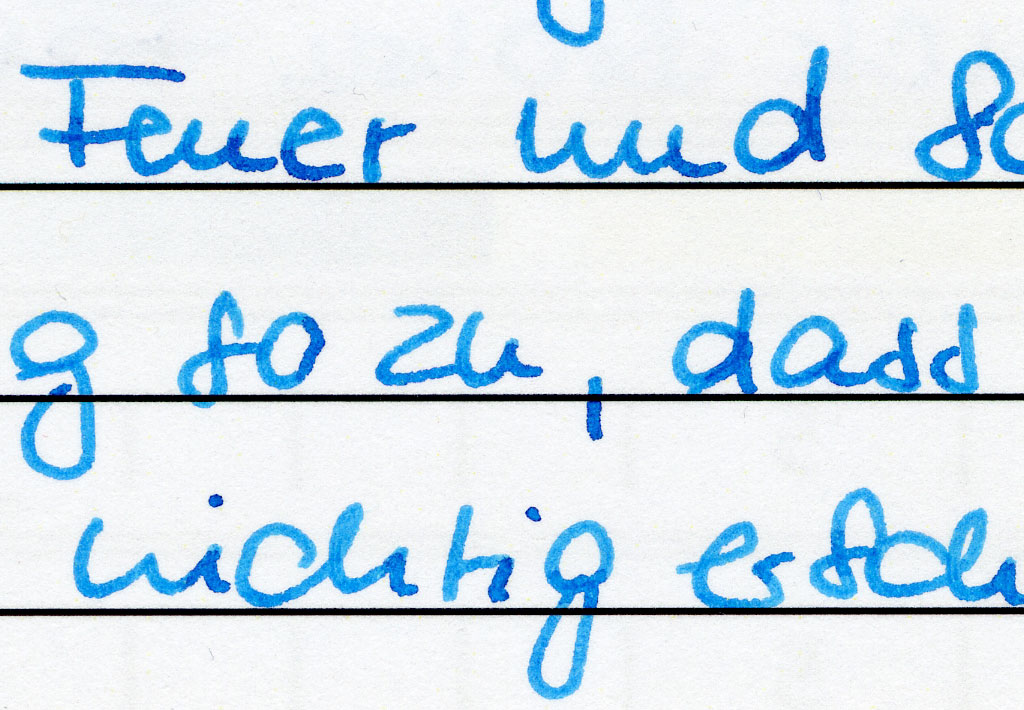 Feuer und so
g so zu, dass
nichtig ersch